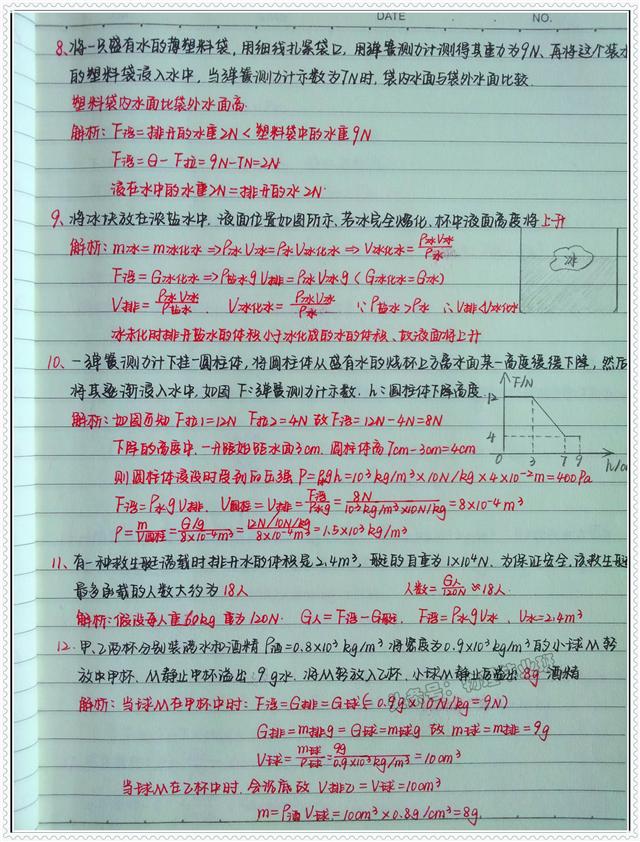 DATE NO.
8、将一只盛有水的薄塑料袋,用细线扎紧袋口,用弹簧测力计测得其重力为9N、再将这个装水
的塑料袋浸入水中,当弹簧测力计示数为7N时,袋内水面与袋外水面比较.
塑料袋内水面比袋外水面高.
解析:F浮=排开的水重2N<塑料袋中的水重9N
F浮=G-F拉=9N-7N=2N
浸在水中的水重2N=排开的水2N.
9、将冰块放在浓盐水中.液面位置如图所示.若冰完全熔化.杯中液面高度将上升
解析:m冰=m冰化水⇒ρ冰V冰=ρ水V冰化水⇒V冰化水=ρ冰V冰/ρ水
冰
F浮=G冰化水⇒ρ盐水gV排=ρ冰V冰g(G冰化水=G冰)
V排=ρ冰V冰/ρ盐水. V冰化水=ρ冰V冰/ρ水 ∵ρ盐水>ρ水 ∴V排<V冰化水
冰未化时排开盐水的体积小于冰化成的水的体积、故液面将上升
10、一弹簧测力计下挂一圆柱体,将圆柱体从盛有水的烧杯上方离水面某一高度缓缓下降,然后
将其逐渐浸入水中,如图F:弹簧测力计示数.h:圆柱体下降高度
F/N
12
4
0 3 7 9
解析:如图可知F拉1=12N F拉2=4N故F浮=12N-4N=8N
下降的高度中.一开始始距水面3cm.圆柱体高7cm-3cm=4cm
则圆柱体浸没时受到的压强P=ρgh=10³kg/m³×10N/kg×4×10⁻²m=400Pa
F浮=ρ水gV排. V圆柱=V排=F浮/ρ水g=8N/10³kg/m³×10N/kg=8×10⁻⁴m³
ρ=m/V圆柱=G/g/8×10⁻⁴m³=12N/10N/kg/8×10⁻⁴m³=1.5×10³kg/m³
11、有一种救生艇满载时排开水的体积是2.4m³,艇的自重为1×10⁴N.为保证安全,该救生艇
最多承载的人数大约为18人 人数=G人/120N≈18人.
解析:假设每人重60kg重为120N. G人=F浮-G艇. F浮=ρ水gV水. V水=2.4m³
12.甲、乙两杯分别装满水和酒精ρ酒=0.8×10³kg/m³将密度为0.9×10³kg/m³的小球M轻
放中甲杯.M静止中杯溢出:9g水.将M轻放入乙杯.小球M静止后溢出8g酒精
解析:当球M在甲杯中时:F浮=G排=G球(=0.9g×10N/kg=9N)
G排=m排g=G球=m球g 故m球=m排=9g
V球=m球/ρ球=9g/0.9×10³kg/m³=10cm³
当球M在乙杯中时.会沉底故V排乙=V球=10cm³
m=ρ酒V球=10cm³×0.8g/cm³=8g.